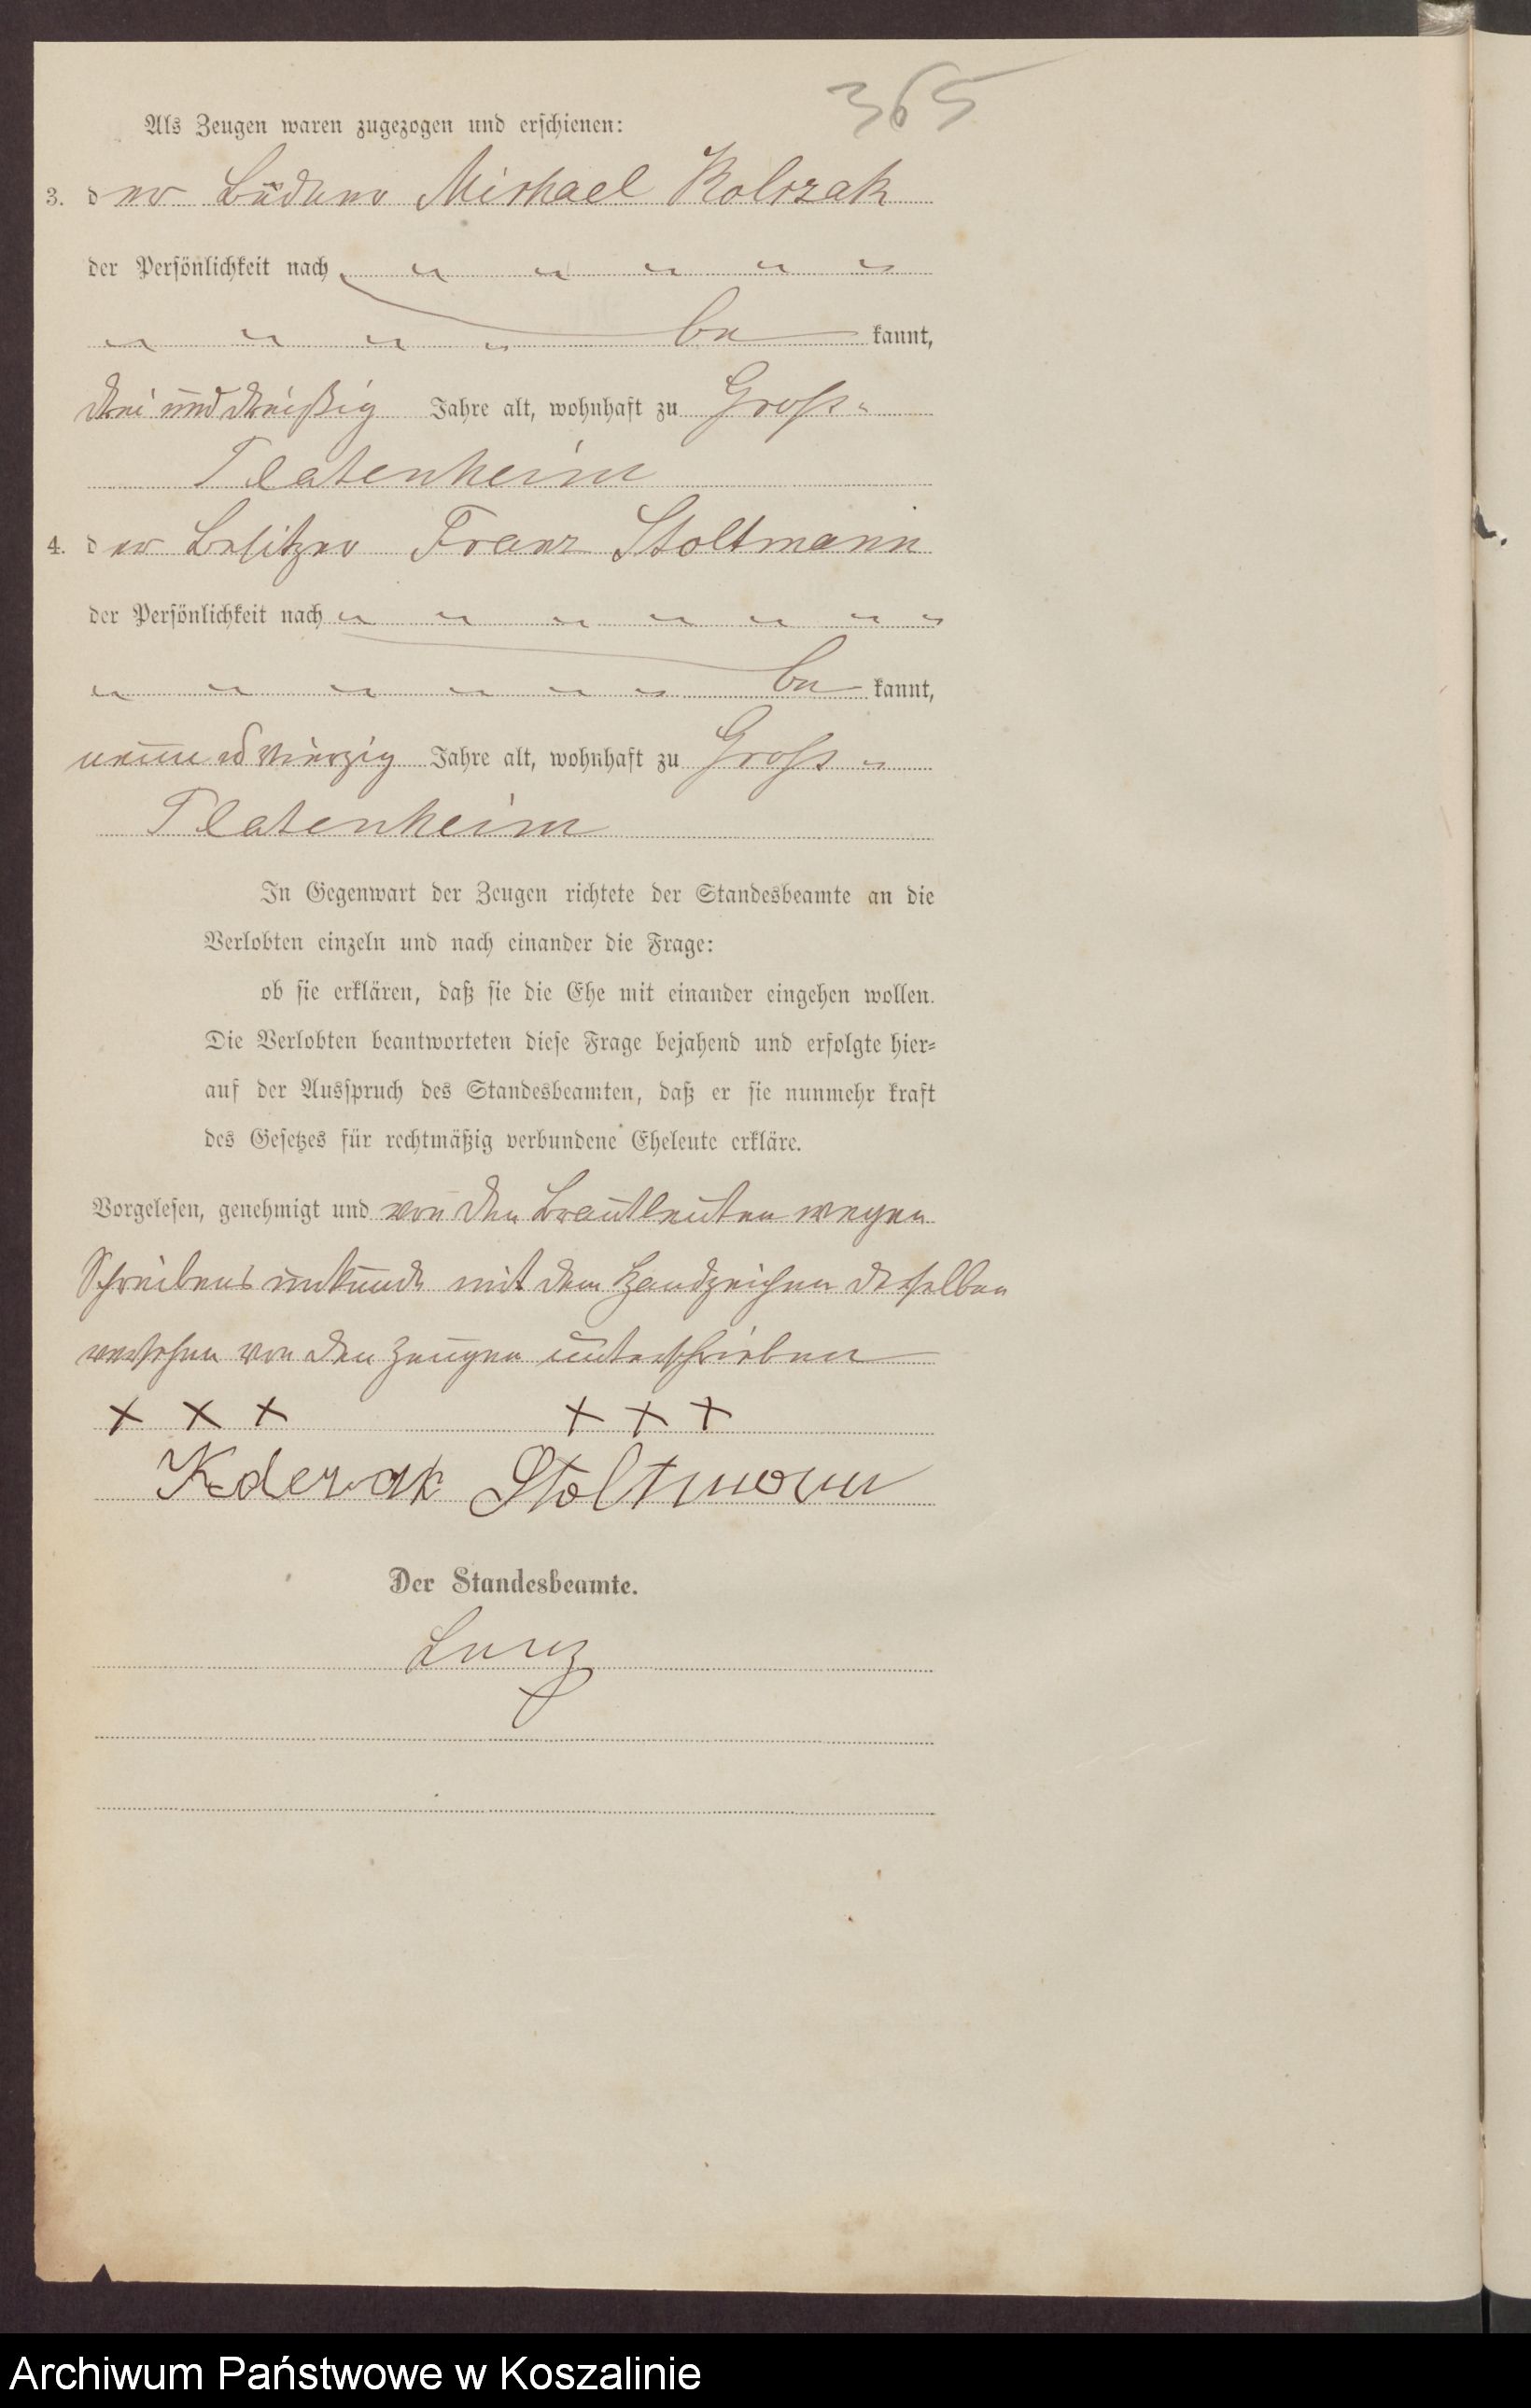 365
Als Zeugen waren zugezogen und erschienen:
3. der Büdner Michael Kolrzak
der Persönlichkeit nach
be kannt,
drei und dreißig Jahre alt, wohnhaft zu Groß-
Platenheim
4. der Besitzer Franz Stoltmann
der Persönlichkeit nach
be kannt,
neun und vierzig Jahre alt, wohnhaft zu Groß-
Platenheim
In Gegenwart der Zeugen richtete der Standesbeamte an die
Verlobten einzeln und nach einander die Frage:
ob sie erklären, daß sie die Ehe mit einander eingehen wollen.
Die Verlobten beantworteten diese Frage bejahend und erfolgte hier-
auf der Ausspruch des Standesbeamten, daß er sie nunmehr kraft
des Gesetzes für rechtmäßig verbundene Eheleute erkläre.
Vorgelesen, genehmigt und von den Brautleuten wegen
Schreibens unkunde mit dem Handzeichen derselben
versehen von den Zeugen unterschrieben
+ + + + + +
Stoltmann
Der Standesbeamte.
Archiwum Państwowe w Koszalinie